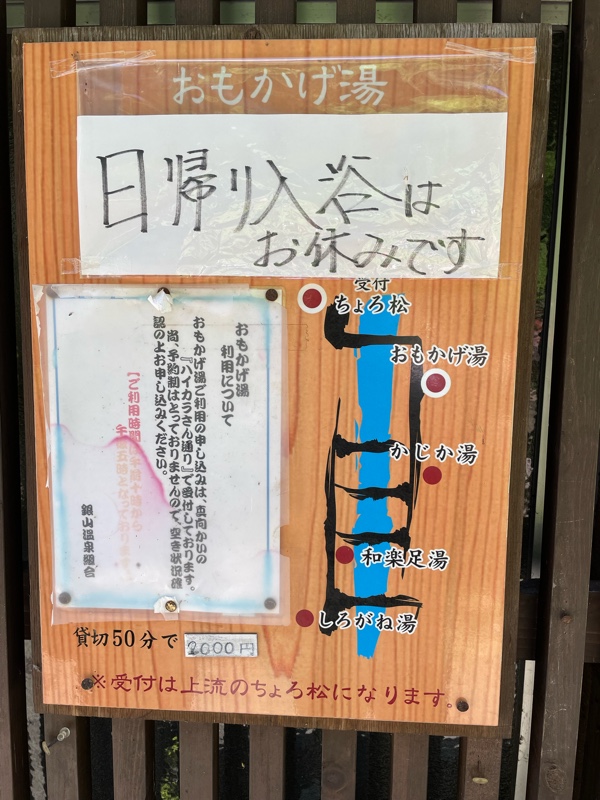 おもかげ湯
日帰り入浴は
お休みです
おもかげ湯
利用について
おもかげ湯ご利用の申し込みは、真向かいの
『ハイカラさん通り』で受付しております。
尚、予約制はとっておりませんので、空き状況確
認の上お申し込みください。
【ご利用時間
午前十時から
午後五時となっております
銀山温泉組合
受付
ちょろ松
おもかげ湯
かじか湯
和楽足湯
しろがね湯
貸切50分で 2000円
※受付は上流のちょろ松になります。